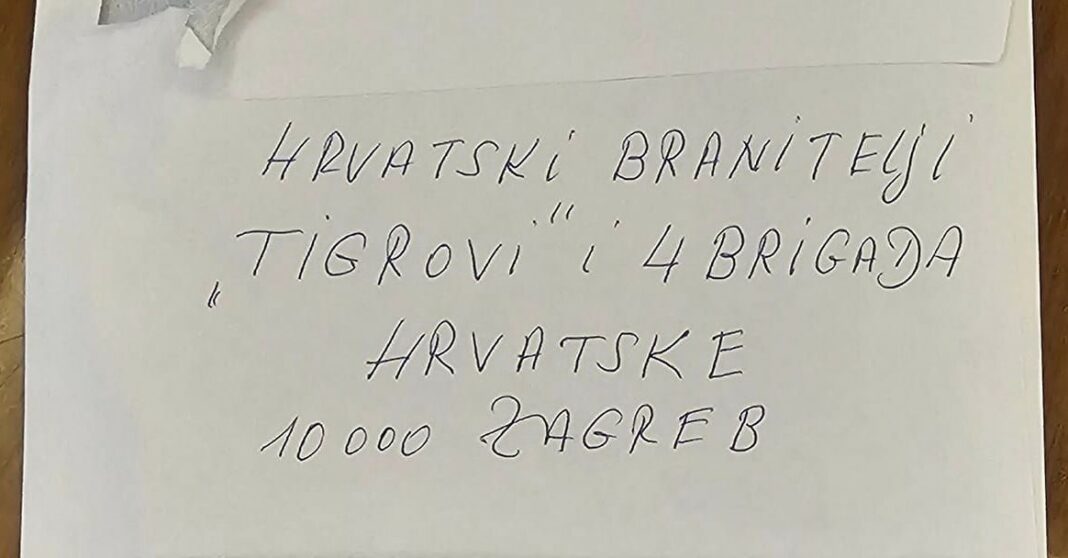 HRVATSKI BRANITELJI
„TIGROVI" i 4 BRIGADA
HRVATSKE
10000 ZAGREB